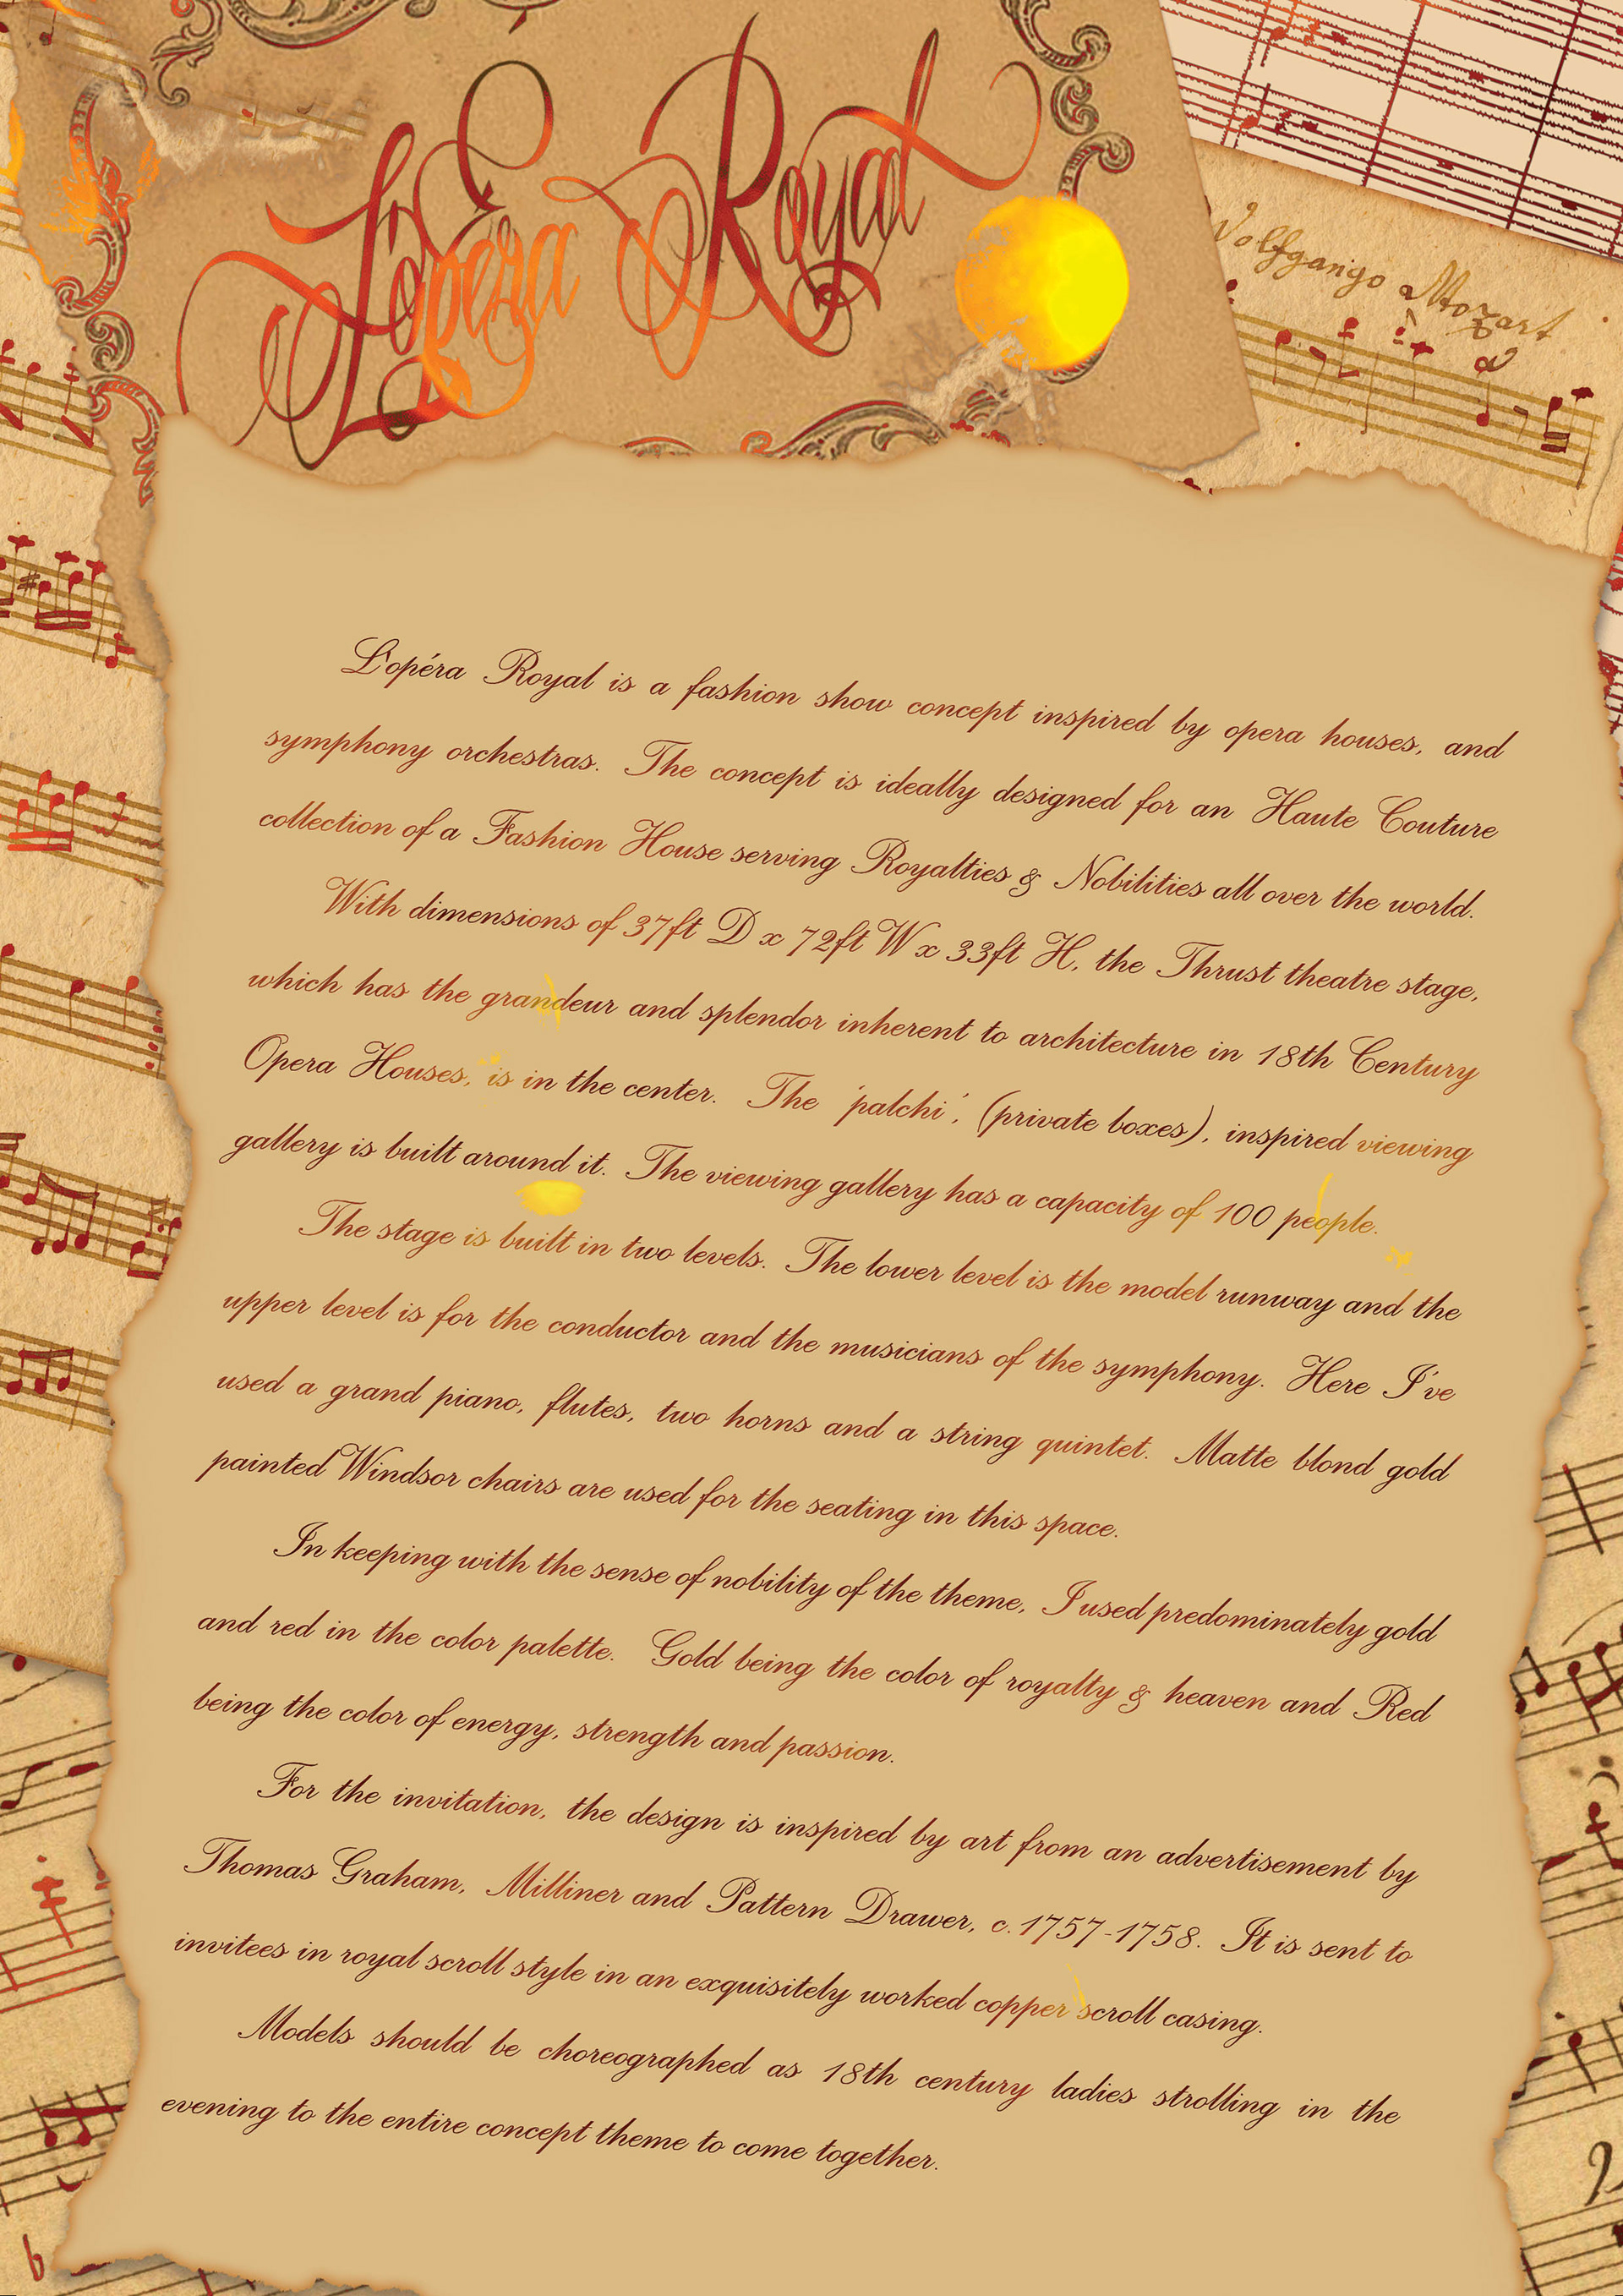 L'opera Royal
Wolfgango Mozart
L'opéra Royal is a fashion show concept inspired by opera houses, and
symphony orchestras. The concept is ideally designed for an Haute Couture
collection of a Fashion House serving Royalties & Nobilities all over the world.
With dimensions of 37ft D x 72ft W x 33ft H, the Thrust theatre stage,
which has the grandeur and splendor inherent to architecture in 18th Century
Opera Houses, is in the center. The 'palchi', (private boxes), inspired viewing
gallery is built around it. The viewing gallery has a capacity of 100 people.
The stage is built in two levels. The lower level is the model runway and the
upper level is for the conductor and the musicians of the symphony. Here I've
used a grand piano, flutes, two horns and a string quintet. Matte blond gold
painted Windsor chairs are used for the seating in this space.
In keeping with the sense of nobility of the theme, I used predominately gold
and red in the color palette. Gold being the color of royalty & heaven and Red
being the color of energy, strength and passion.
For the invitation, the design is inspired by art from an advertisement by
Thomas Graham, Milliner and Pattern Drawer, c.1757-1758. It is sent to
invitees in royal scroll style in an exquisitely worked copper scroll casing.
Models should be choreographed as 18th century ladies strolling in the
evening to the entire concept theme to come together.